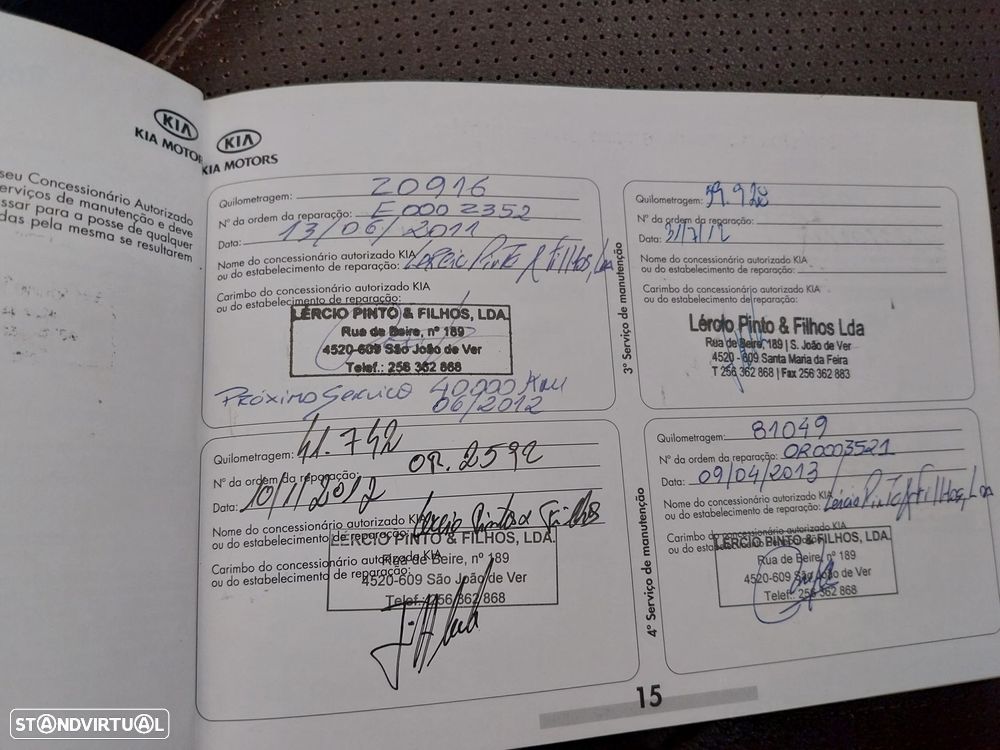 KIA
KIA MOTOR
seu Concessionário Autorizado
erviços de manutenção e deve
ssar para a posse de qualquer
das pela mesma se resultarem
KIA
KIA MOTORS
Quilometragem: 20916
Nº da ordem da reparação: E 000 2352
Data: 13/06/2011
Nome do concessionário autorizado KIA
ou do estabelecimento de reparação: Lércio Pinto & Filhos, Lda
Carimbo do concessionário autorizado KIA
ou do estabelecimento de reparação:
LÉRCIO PINTO & FILHOS, LDA.
Rua de Beire, nº 189
4520-609 São João de Ver
Telef.: 256 362 868
Próximo Serviço 40000 Km
06/2012
3º Serviço de manutenção
Quilometragem:
Nº da ordem da reparação:
Data: 31/7/12
Nome do concessionário autorizado KIA
ou do estabelecimento de reparação:
Carimbo do concessionário autorizado KIA
ou do estabelecimento de reparação:
Lércio Pinto & Filhos Lda
Rua de Beire, 189 | S. João de Ver
4520 - 609 Santa Maria da Feira
T 256 362 868 | Fax 256 362 883
Quilometragem: 41.742
Nº da ordem da reparação: OR. 2592
Data: 10/1/2012
Nome do concessionário autorizado KIA
ou do estabelecimento de reparação: Lércio Pinto & Filhos
Carimbo do concessionário autorizado KIA
ou do estabelecimento de reparação:
LÉRCIO PINTO & FILHOS, LDA.
Rua de Beire, nº 189
4520-609 São João de Ver
Telef.: 256 362 868
4º Serviço de manutenção
Quilometragem: 81049
Nº da ordem da reparação: OR0003521
Data: 09/04/2013
Nome do concessionário autorizado KIA
ou do estabelecimento de reparação: Lércio Pinto & Filhos, Lda
Carimbo do concessionário autorizado KIA
ou do estabelecimento de reparação:
LÉRCIO PINTO & FILHOS, LDA.
Rua de Beire, nº 189
4520-609 São João de Ver
Telef.: 256 362 868
15
STANDVIRTUAL